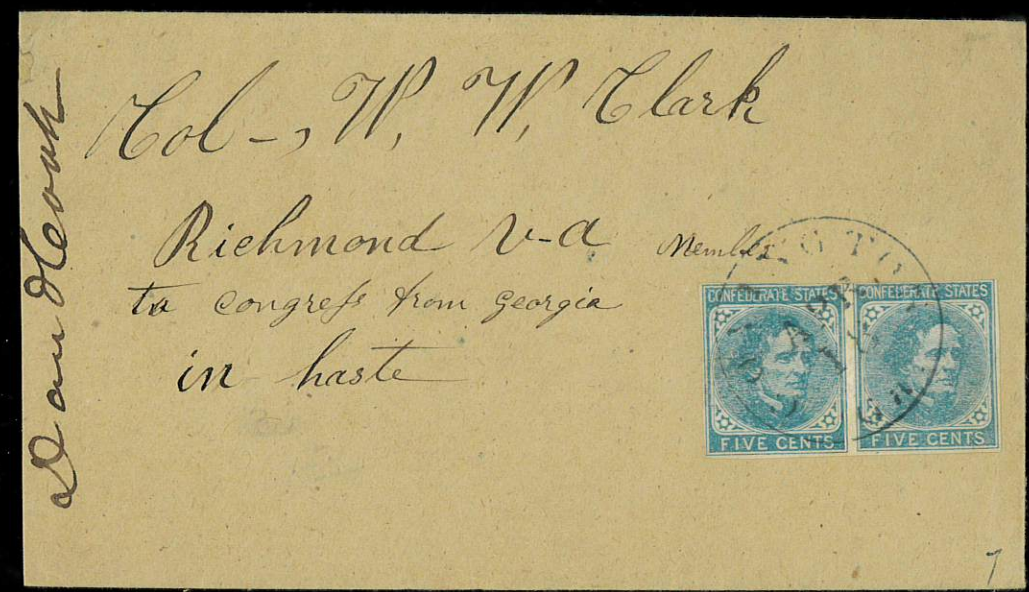 Col-, W, W, Clark
Richmond v-a Member
to congress from georgia
in haste
CONFEDERATE STATES
FIVE CENTS
CONFEDERATE STATES
FIVE CENTS
COVINGTON
7